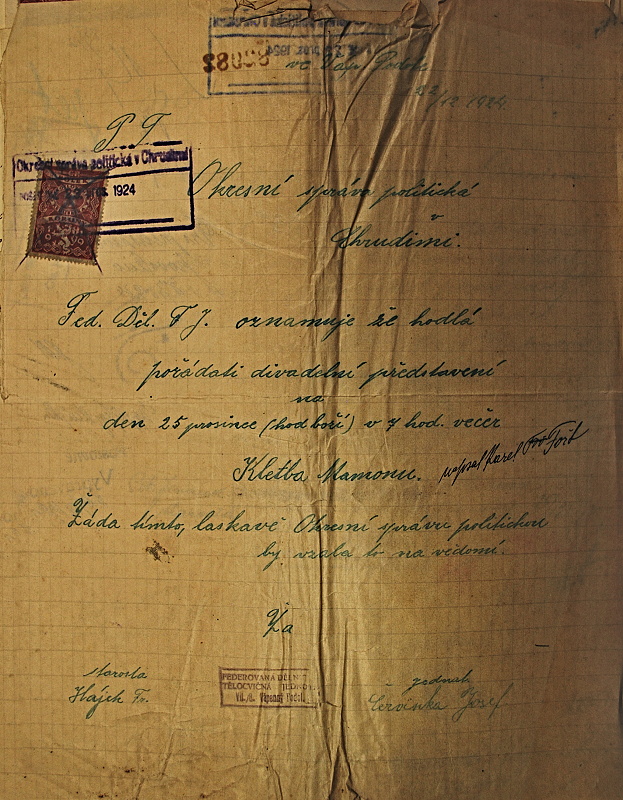 ve Váp. Podole
22/12 1924
P T
Okresní správa politická v Chrudimi
1924
Okresní správa politická
v
Chrudimi.
Fed. Děl. T J. oznamuje že hodlá
pořádati divadelní představení
na
den 25 prosince (hod boží) v 7 hod. večer
Kletba Mamonu. napsal Karel Fořt
Žáda tímto, laskavě Okresní správu politickou
by vzala to na vědomí.
Za
starosta
Hájek Fr.
FEDEROVANÁ DĚLNIC
TĚLOCVIČNÁ JEDNOT
Vápenný Podol
jednat.
Červinka Josef